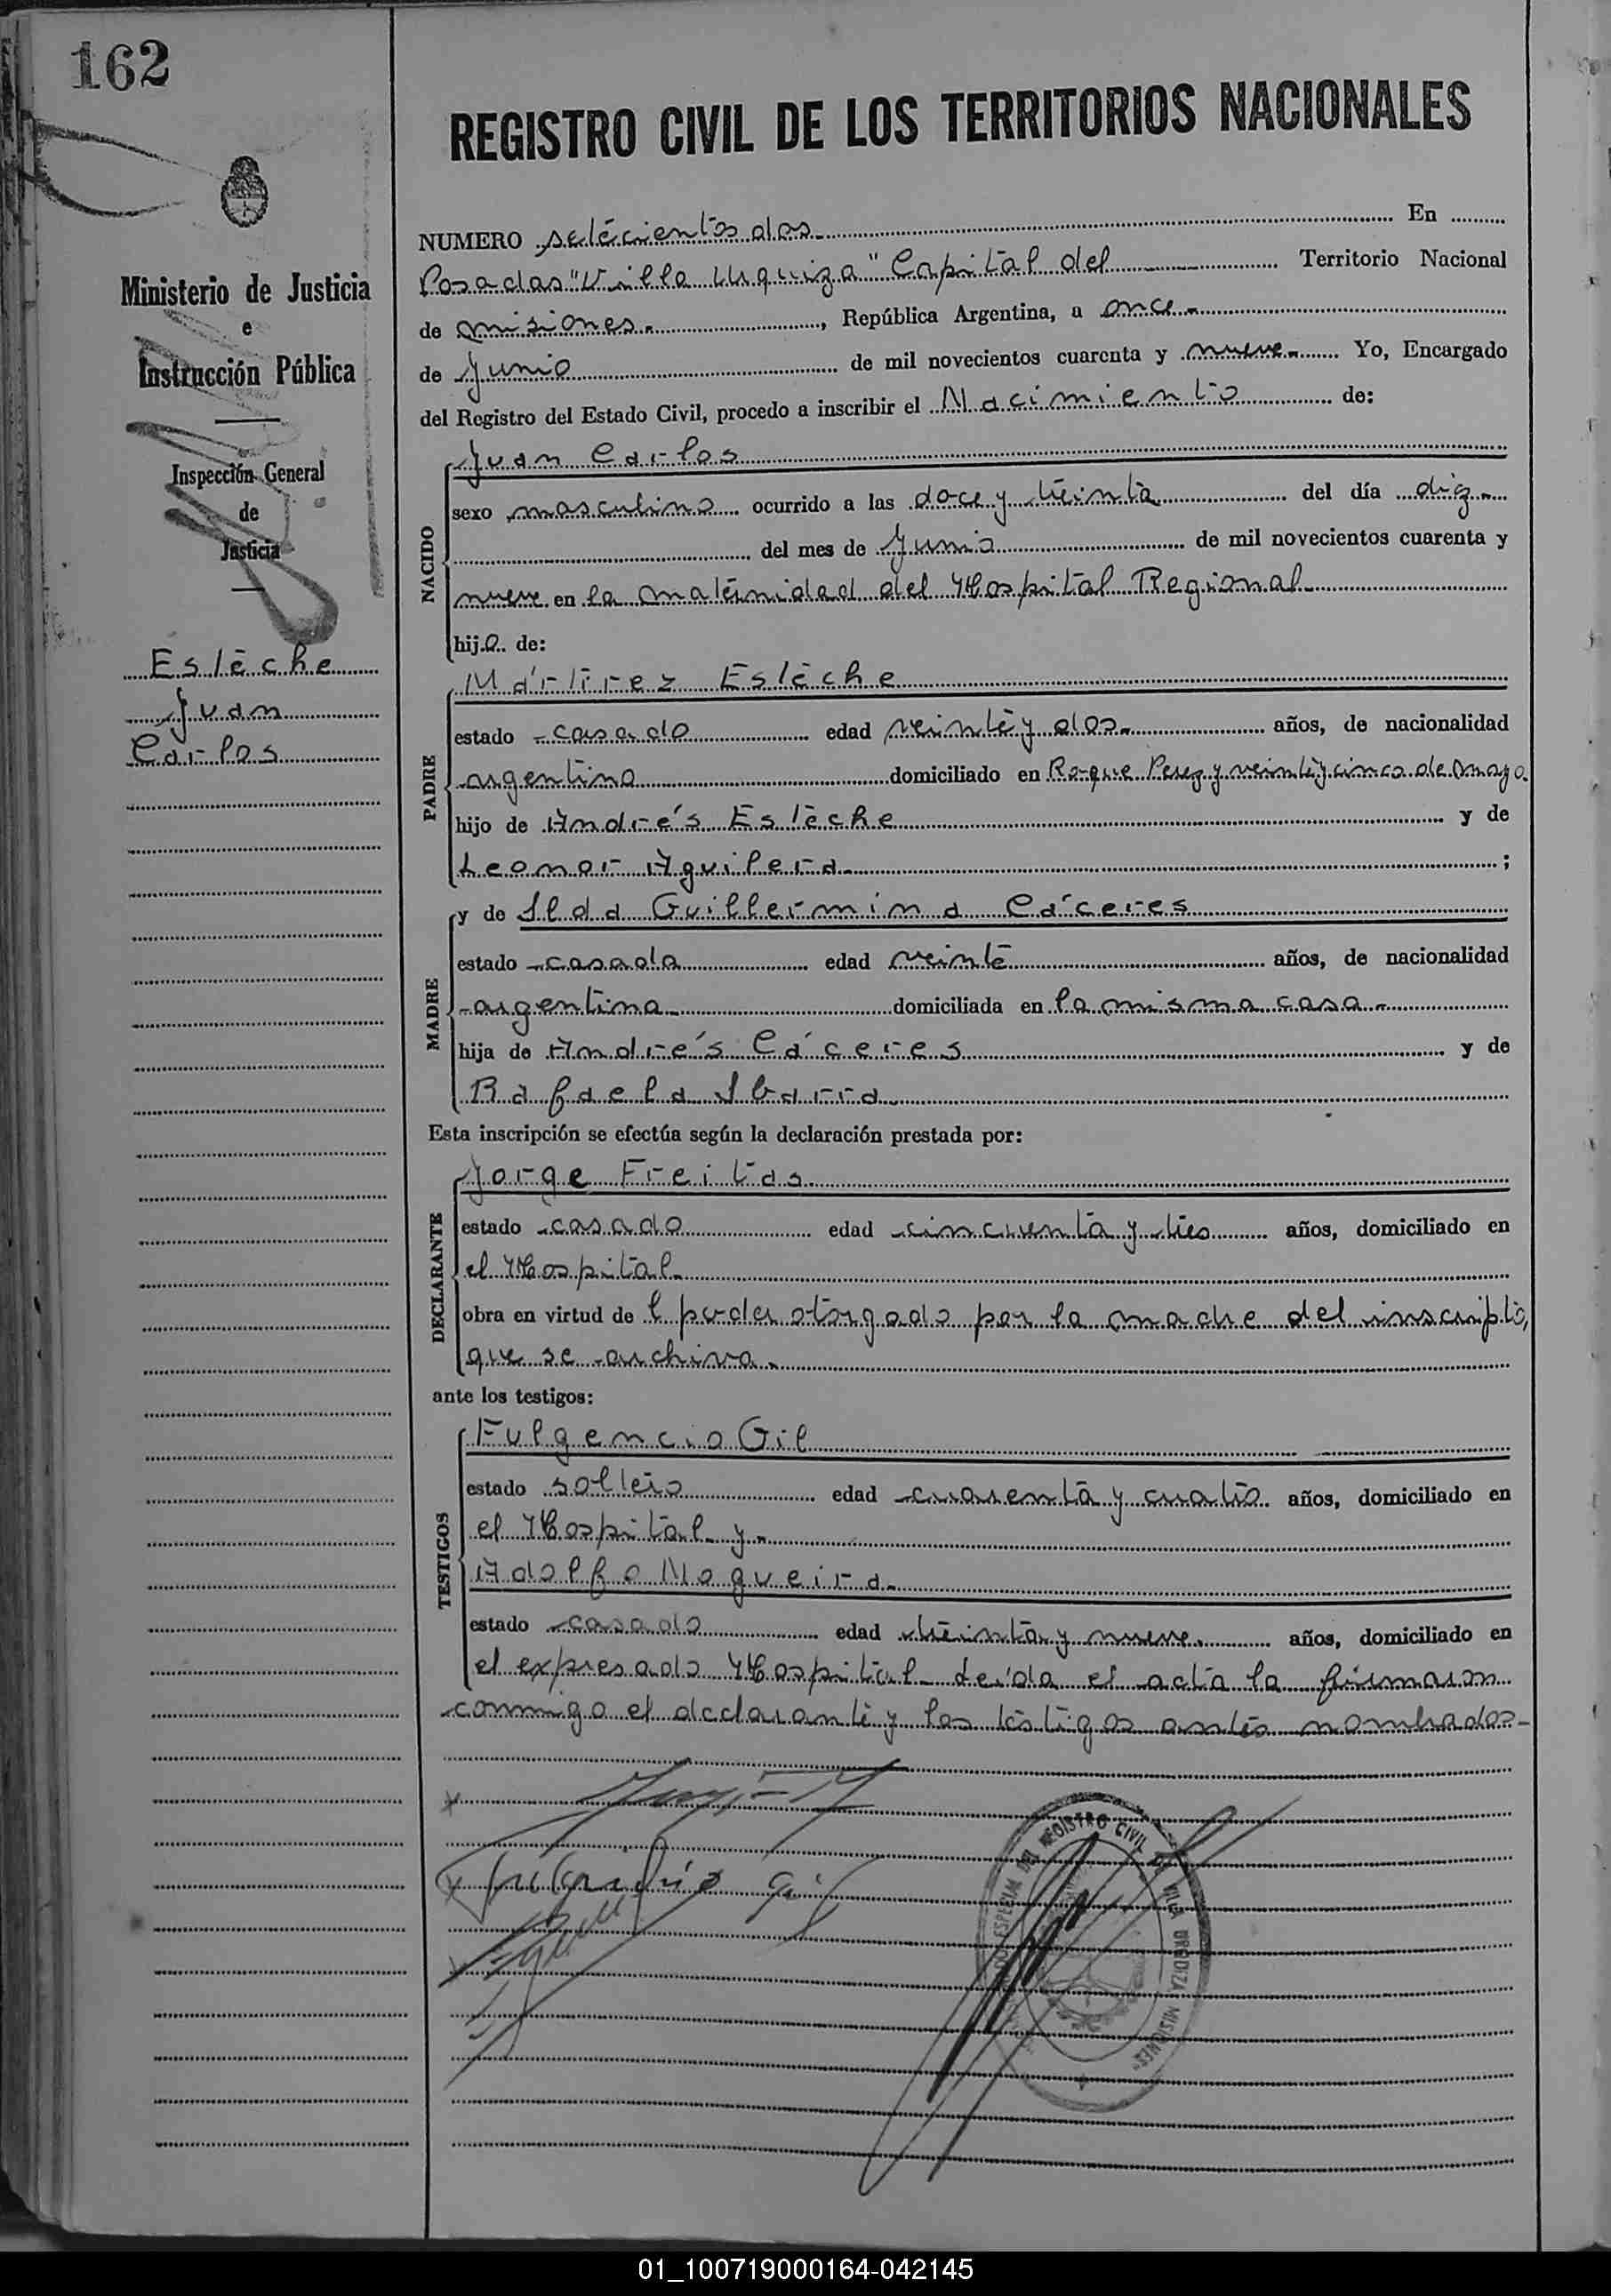 162
REGISTRO CIVIL DE LOS TERRITORIOS NACIONALES
Ministerio de Justicia
e
Instrucción Pública
Inspección General
de
Justicia
Estéche
Juan
Carlos
NUMERO setecientos dos En
Posadas "Villa Urquiza" Capital del Territorio Nacional
de Misiones. , República Argentina, a once
de Junio de mil novecientos cuarenta y nueve Yo, Encargado
del Registro del Estado Civil, procedo a inscribir el Nacimiento de:
NACIDO
Juan Carlos
sexo masculino ocurrido a las doce y treinta del día diez
del mes de Junio de mil novecientos cuarenta y
nueve en la maternidad del Hospital Regional
hijo de:
PADRE
Mártirez Estéche
estado casado edad veinte y dos años, de nacionalidad
argentina domiciliado en Roque Perez y veinte y cinco de Mayo.
hijo de Andrés Estéche y de
Leonor Aguilera ;
MADRE
y de Ilda Guillermina Cáceres
estado casada edad veinte años, de nacionalidad
argentina domiciliada en la misma casa
hija de Andrés Cáceres y de
Rafaela Ibarra
Esta inscripción se efectúa según la declaración prestada por:
DECLARANTE
Jorge Freitas
estado casado edad cincuenta y tres años, domiciliado en
el Hospital
obra en virtud del poder otorgado por la madre del inscripto,
que se archiva.
ante los testigos:
TESTIGOS
Fulgencio Gil
estado soltero edad cuarenta y cuatro años, domiciliado en
el Hospital y
Adolfo Nogueira
estado casado edad treinta y nueve años, domiciliado en
el expresado Hospital Leída el acta la firmaron
conmigo el declarante y los testigos antes nombrados-
REGISTRO CIVIL VILLA URQUIZA MISIONES
01_100719000164-042145